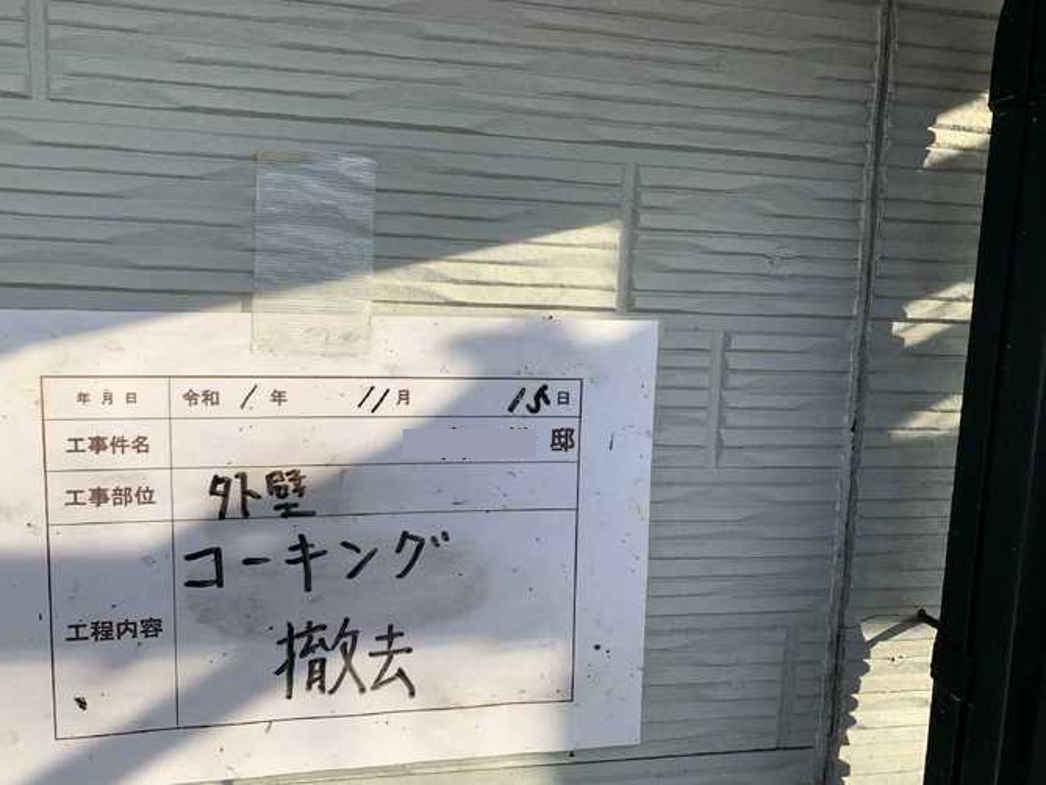 年月日 令和 1年 11月 15日
工事件名 邸
工事部位 外壁
工程内容 コーキング
撤去